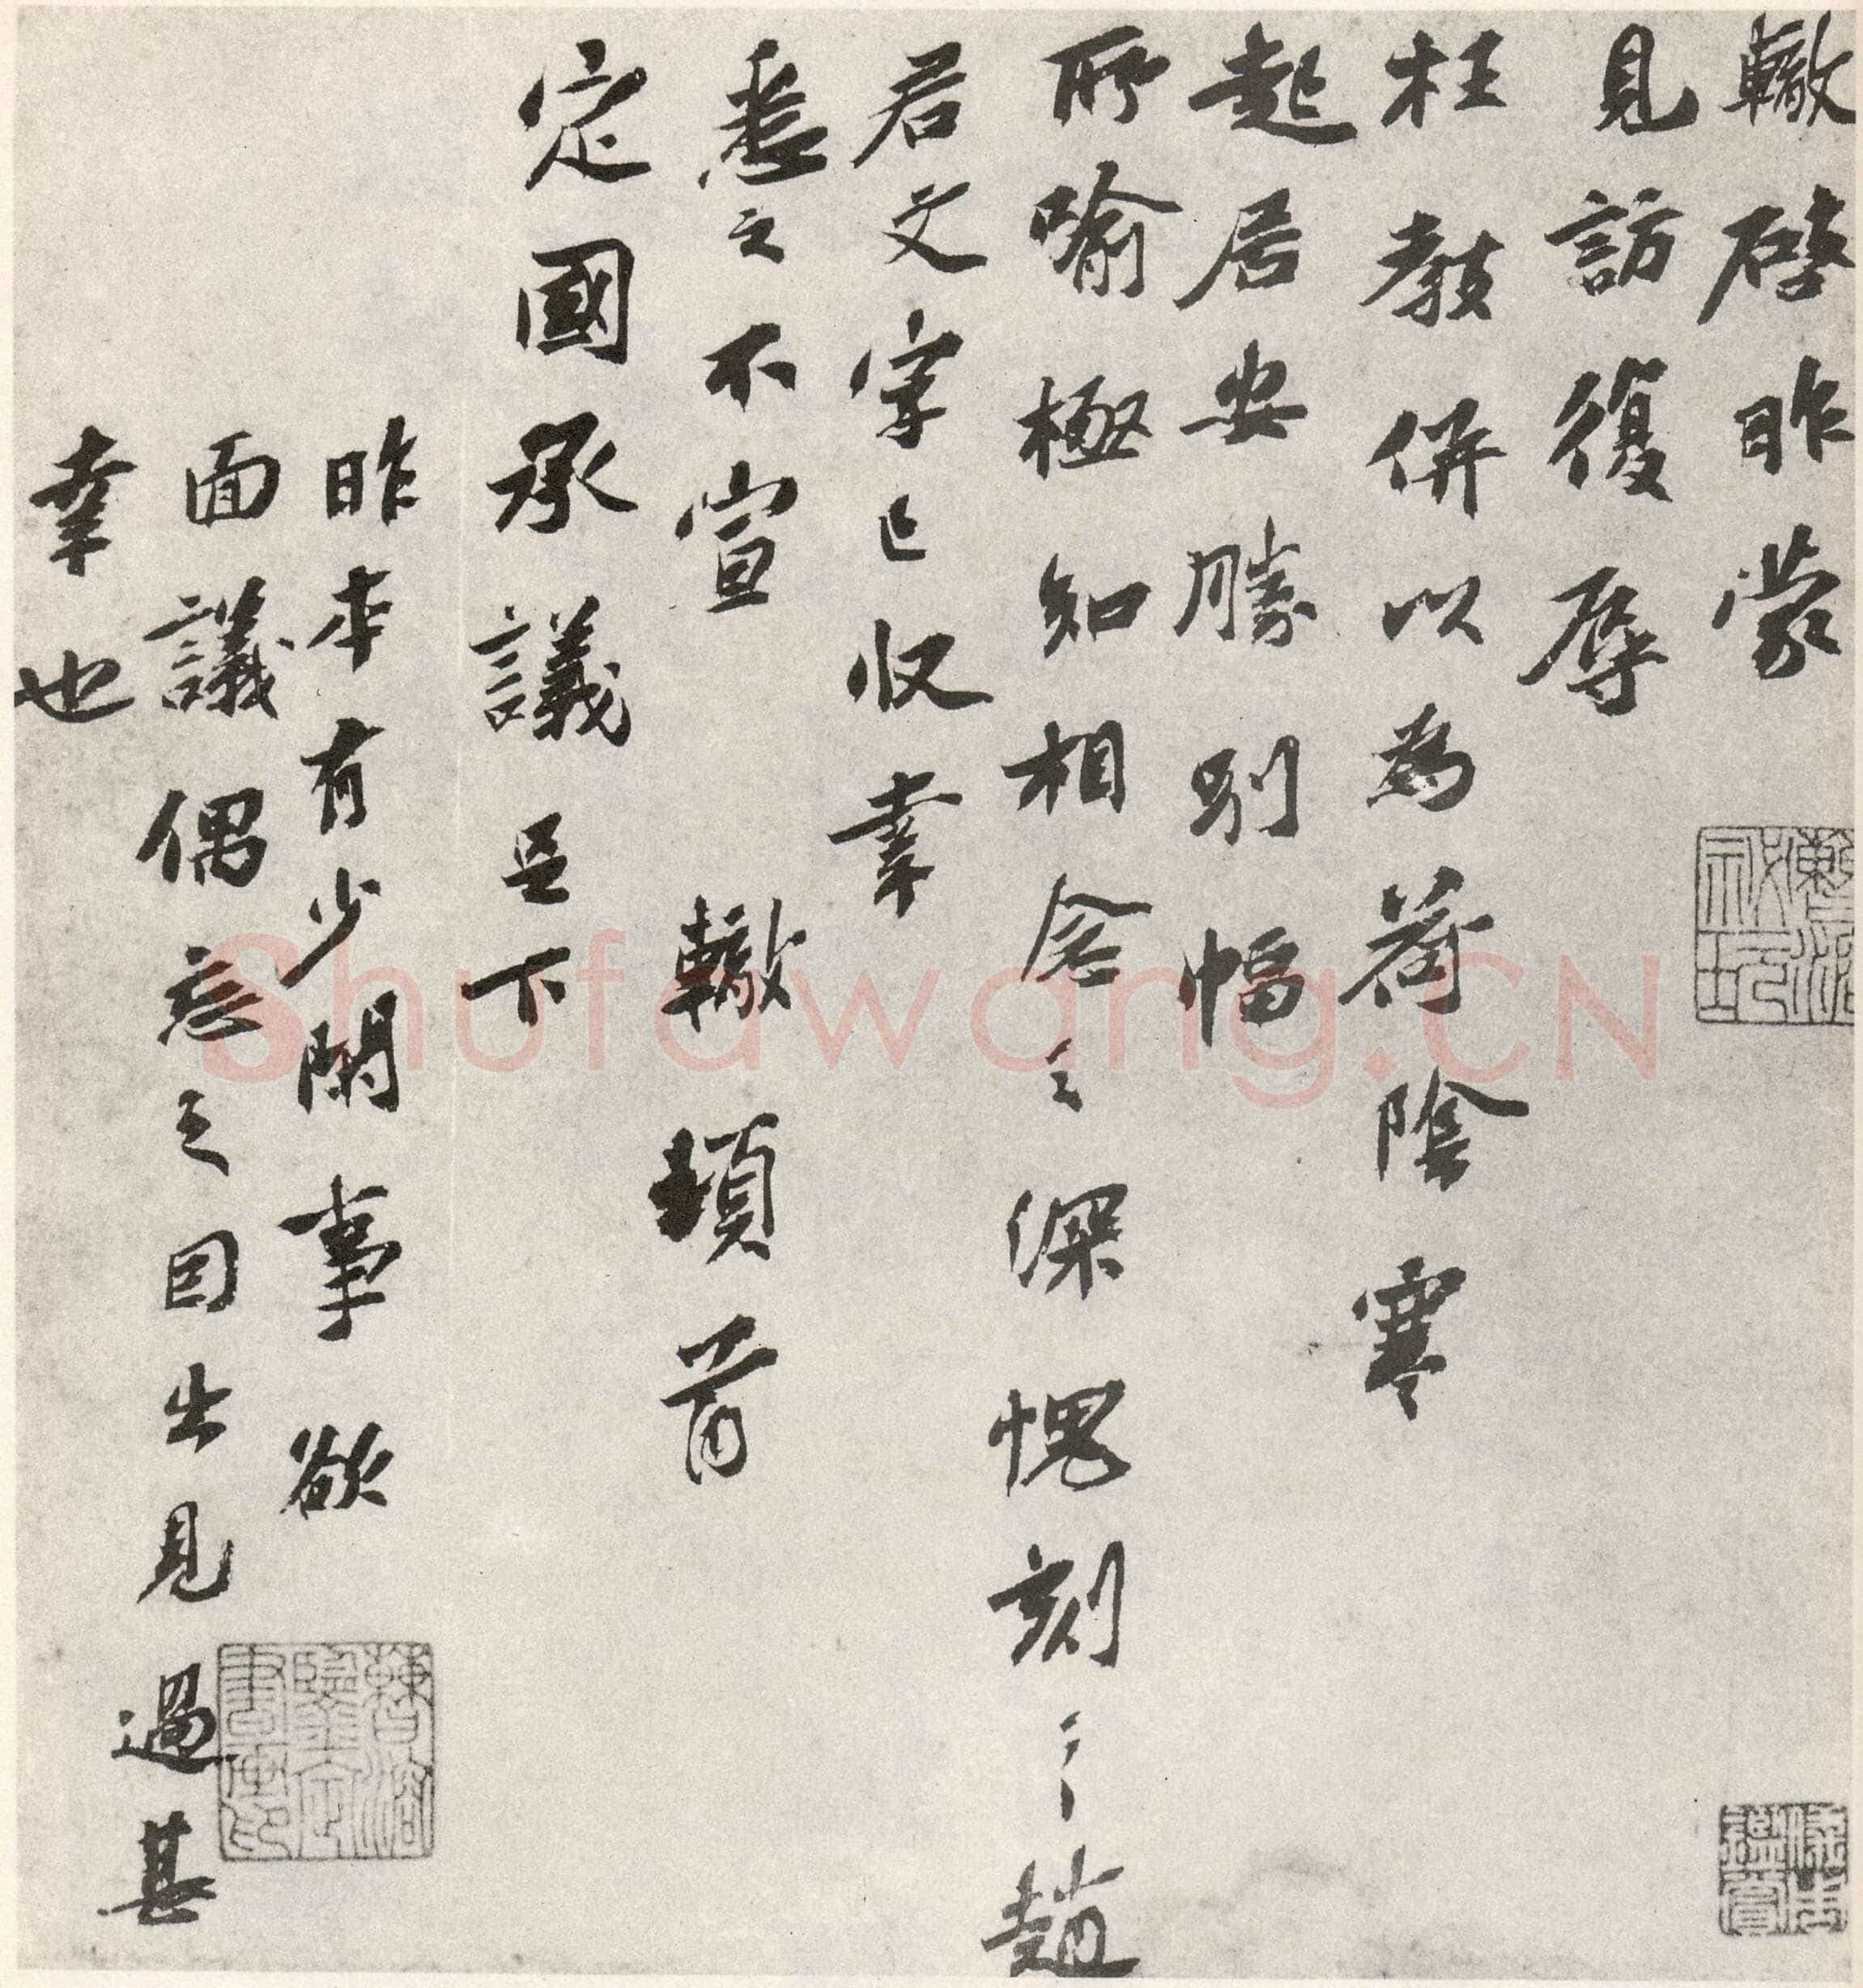 轍啓昨蒙
見訪復辱
枉教併以為荷陰寒
起居安勝別幅
所喻極知相念之深愧刻〻趙
君文字已収幸
悉之不宣 轍頓首
定國承議 呈下
昨本有少閑事欲
面議偶忘之因出見過甚
幸也
shufawang.CN